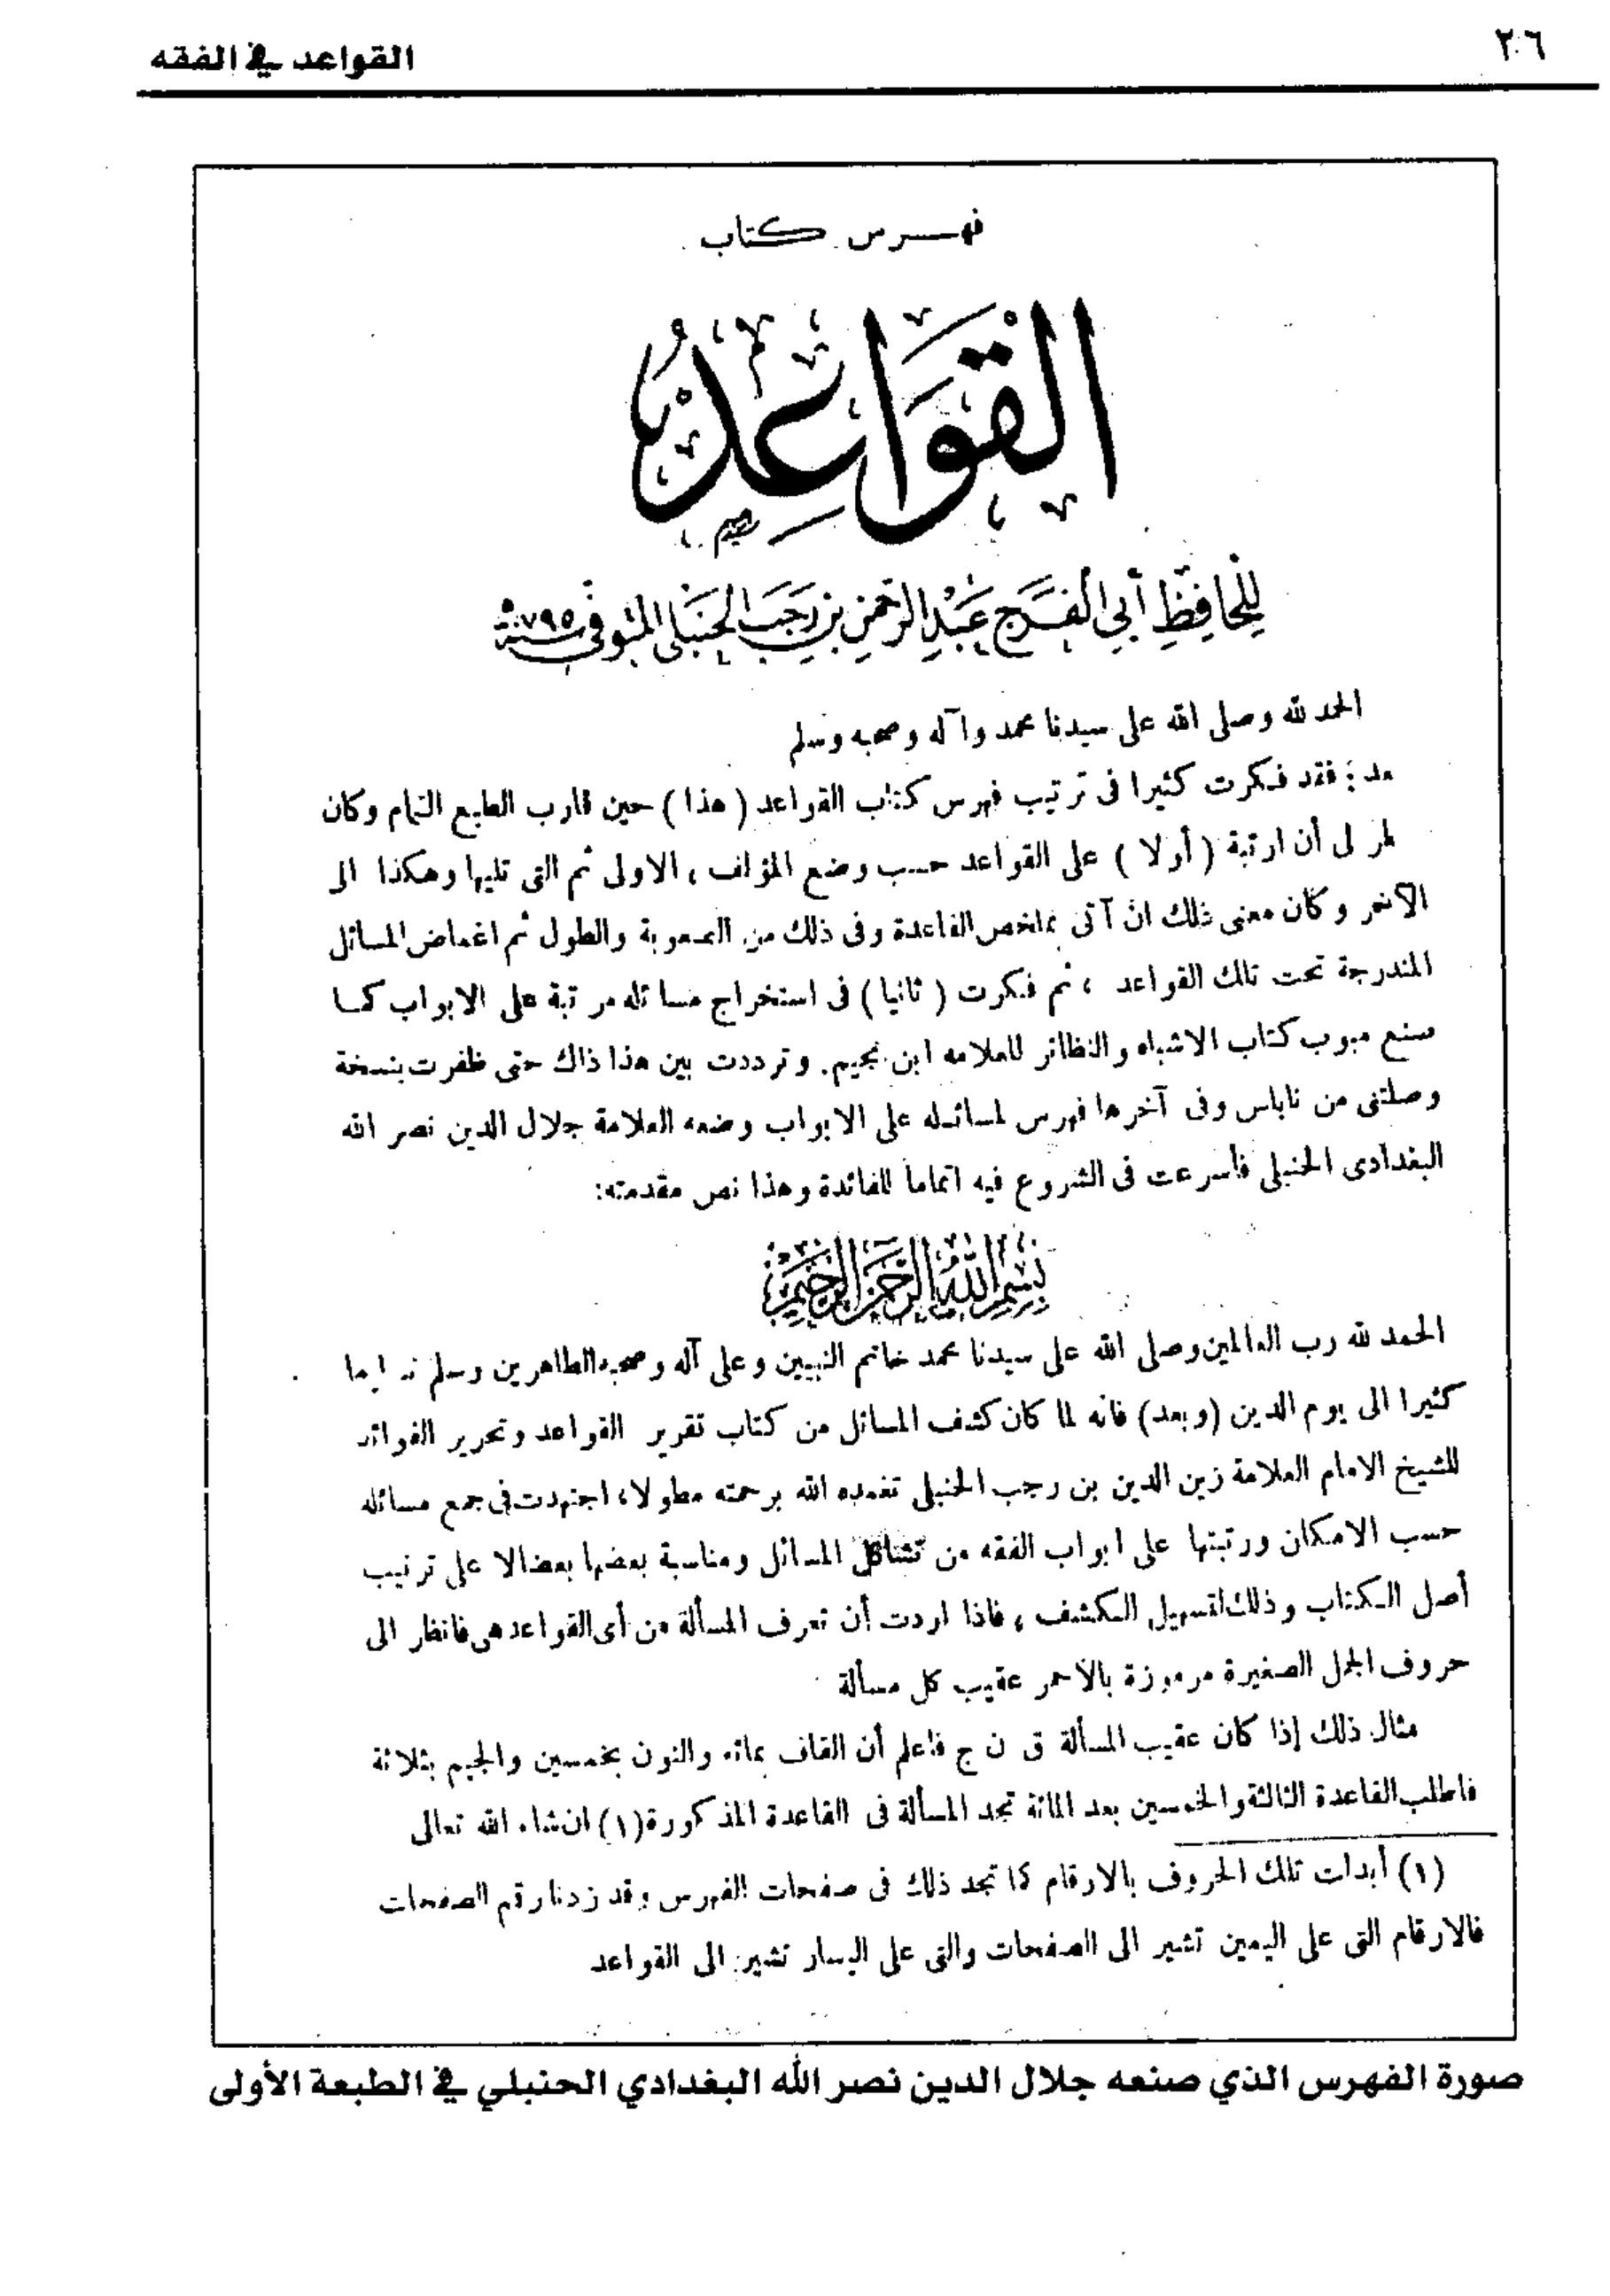 ٢٠٦
القواعد في الفقه
فهرس كتاب
القَوَاعِدُ
لِلحَافِظِ أَبِي الفَرَج عَبْدِ الرَّحمٰنِ بن رَجَب الحَنْبَلى المتوفى سنة ٧٩٥ ه
الحمد لله وصلى الله على سيدنا محمد وآله وصحبه وسلم
بعد : فقد فكرت كثيرا فى ترتيب فهرس كتاب القواعد ( هذا ) حين قارب الطبع التمام وكان
لى أن ارتبة ( أولا ) على القواعد حسب وضع المؤلف ، الاولى ثم التى تليها وهكذا الى
الآخر وكان معنى ذلك ان آتى بملخص القاعدة وفى ذلك من الصعوبة والطول ثم اغماض المسائل
المندرجة تحت تلك القواعد ، ثم فكرت ( ثانيا ) فى استخراج مسائله مرتبة على الابواب كما
صنع مبوب كتاب الاشباه والنظائر للعلامه ابن نجيم . وترددت بين هذا ذاك حتى ظفرت بنسخة
وصلتنى من نابلس وفى آخرها فهرس لمسائله على الابواب وضعه العلامة جلال الدين نصر الله
البغدادى الحنبلى فأسرعت فى الشروع فيه اتماما للفائدة وهذا نص مقدمته :
بسم الله الرحمن الرحيم
الحمد لله رب العالمين وصلى الله على سيدنا محمد خاتم النبيين وعلى آله وصحبه الطاهرين وسلم
كثيرا الى يوم الدين (وبعد) فانه لما كان كشف المسائل من كتاب تقرير القواعد وتحرير الفوائد
للشيخ الامام العلامة زين الدين بن رجب الحنبلى تغمده الله برحمته مطولا، اجتهدت فى جمع مسائله
حسب الامكان ورتبتها على ابواب الفقه من تشاكل المسائل ومناسبة بعضها بعضا لا على ترتيب
أصل الكتاب وذلك لتسهيل الكشف ، فاذا اردت أن تعرف المسألة من أى القواعد هى فانظر الى
حروف الجمل الصغيرة مرموزة بالاحمر عقيب كل مسألة
مثال ذلك إذا كان عقيب المسألة ق ن ج فاعلم أن القاف بمائه والنون بخمسين والجيم بثلاثة
فاطلب القاعدة الثالثة والخمسين بعد المائة تجد المسألة فى القاعدة المذكورة (١) ان شاء الله تعالى
(١) أبدات تلك الحروف بالارقام كما تجد ذلك فى صفحات الفهرس وقد زدنا رقم الصفحات
فالارقام التى على اليمين تشير الى الصفحات والتى على اليسار تشير الى القواعد
صورة الفهرس الذي صنعه جلال الدين نصر الله البغدادي الحنبلي في الطبعة الأولى